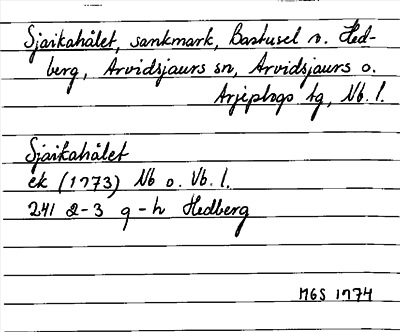 Sjaikahålet, sankmark, Bastusel v. Hed-
berg, Arvidsjaurs sn, Arvidsjaurs o.
Arjeplogs tg, Nb. l.
Sjaikahålet
ek (1773) Nb o. Vb. l.
241 2-3 g-h Hedberg
MGS 1974